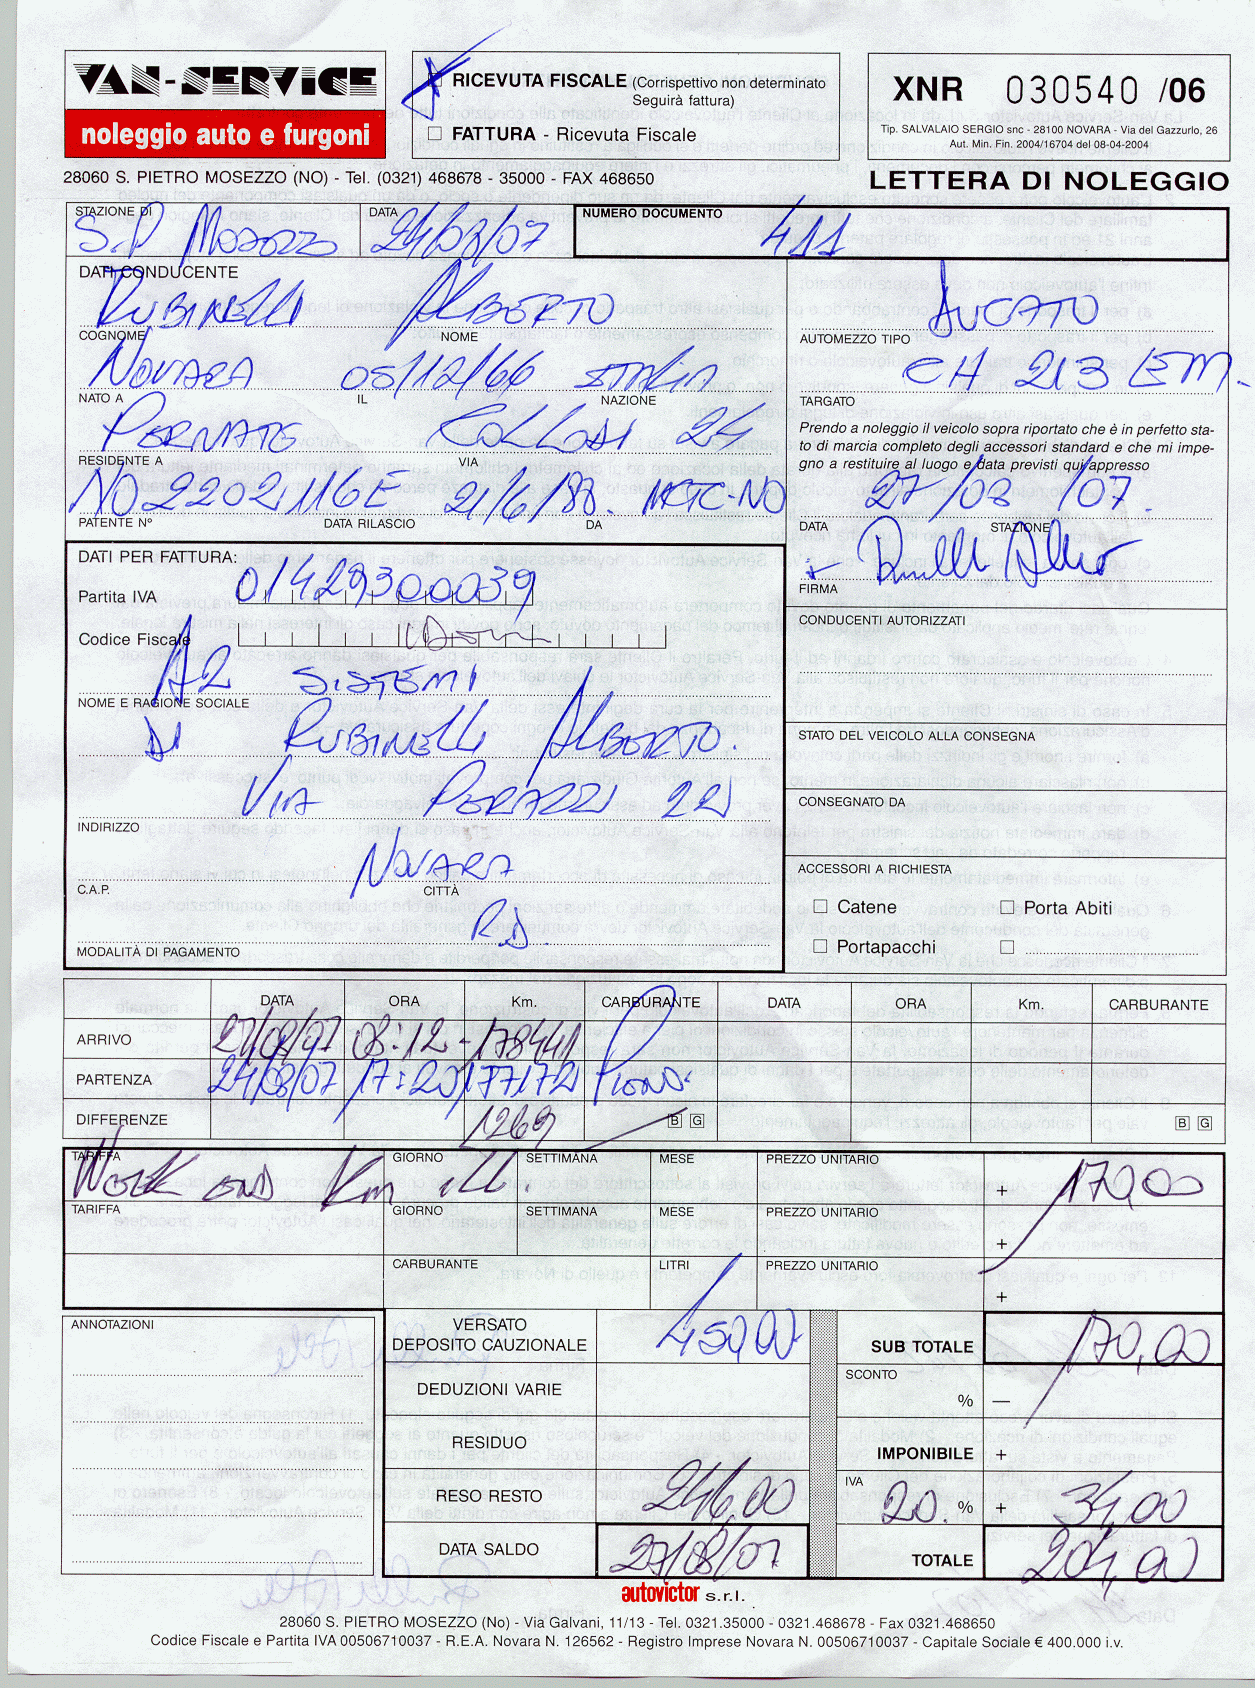 VAN-SERVICE
noleggio auto e furgoni
RICEVUTA FISCALE (Corrispettivo non determinato
Seguirà fattura)
FATTURA - Ricevuta Fiscale
XNR 030540 /06
Tip. SALVALAIO SERGIO snc - 28100 NOVARA - Via del Gazzurlo, 26
Aut. Min. Fin. 2004/16704 del 08-04-2004
28060 S. PIETRO MOSEZZO (NO) - Tel. (0321) 468678 - 35000 - FAX 468650
LETTERA DI NOLEGGIO
STAZIONE DI DATA NUMERO DOCUMENTO
S.P. Mosezzo 24/08/07 411
DATI CONDUCENTE
RUBINELLI ALBERTO DUCATO
COGNOME NOME AUTOMEZZO TIPO
NOVARA 05/12/66 CH 213 EM
NATO A IL NAZIONE TARGATO
PERNATE COLLODI 24
RESIDENTE A VIA
Prendo a noleggio il veicolo sopra riportato che è in perfetto sta-
to di marcia completo degli accessori standard e che mi impe-
gno a restituire al luogo e data previsti qui appresso
NO2202116E 21/6/88. MTC-NO 27/08/07.
PATENTE N° DATA RILASCIO DA DATA STAZIONE
FIRMA
DATI PER FATTURA:
Partita IVA 01429300039
Codice Fiscale
CONDUCENTI AUTORIZZATI
A2 SISTEMI
NOME E RAGIONE SOCIALE
DI RUBINELLI ALBERTO.
STATO DEL VEICOLO ALLA CONSEGNA
VIA PERAZZI 22
INDIRIZZO
CONSEGNATO DA
NOVARA
C.A.P. CITTÀ
R.D.
MODALITÀ DI PAGAMENTO
ACCESSORI A RICHIESTA
Catene Porta Abiti
Portapacchi
DATA ORA Km. CARBURANTE DATA ORA Km. CARBURANTE
ARRIVO 27/08/07 08:12 -178441
PARTENZA 24/08/07 17:20 177172
DIFFERENZE 1269 B G B G
TARIFFA GIORNO SETTIMANA MESE PREZZO UNITARIO
WEEK END Km ill. + 170,00
TARIFFA GIORNO SETTIMANA MESE PREZZO UNITARIO
+
CARBURANTE LITRI PREZZO UNITARIO
+
ANNOTAZIONI
VERSATO
DEPOSITO CAUZIONALE 450,00
SUB TOTALE 170,00
DEDUZIONI VARIE
SCONTO
% —
RESIDUO
IMPONIBILE +
RESO RESTO 246,00
IVA 20. % + 34,00
DATA SALDO 27/08/07
TOTALE 204,00
autovictor s.r.l.
28060 S. PIETRO MOSEZZO (No) - Via Galvani, 11/13 - Tel. 0321.35000 - 0321.468678 - Fax 0321.468650
Codice Fiscale e Partita IVA 00506710037 - R.E.A. Novara N. 126562 - Registro Imprese Novara N. 00506710037 - Capitale Sociale € 400.000 i.v.